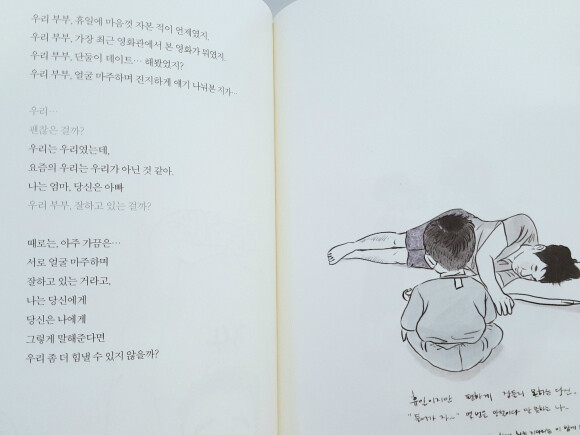 우리 부부, 휴일에 마음껏 자본 적이 언제였지.
우리 부부, 가장 최근 영화관에서 본 영화가 뭐였지.
우리 부부, 단둘이 데이트… 해봤었지?
우리 부부, 얼굴 마주하며 진지하게 얘기 나눠본 지가…
우리…
괜찮은 걸까?
우리는 우리였는데,
요즘의 우리는 우리가 아닌 것 같아.
나는 엄마, 당신은 아빠
우리 부부, 잘하고 있는 걸까?
때로는, 아주 가끔은…
서로 얼굴 마주하며
잘하고 있는 거라고,
나는 당신에게
당신은 나에게
그렇게 말해준다면
우리 좀 더 힘낼 수 있지 않을까?
휴일이지만 편하게 잠들지 못하는 당신.
"들어가 자…"